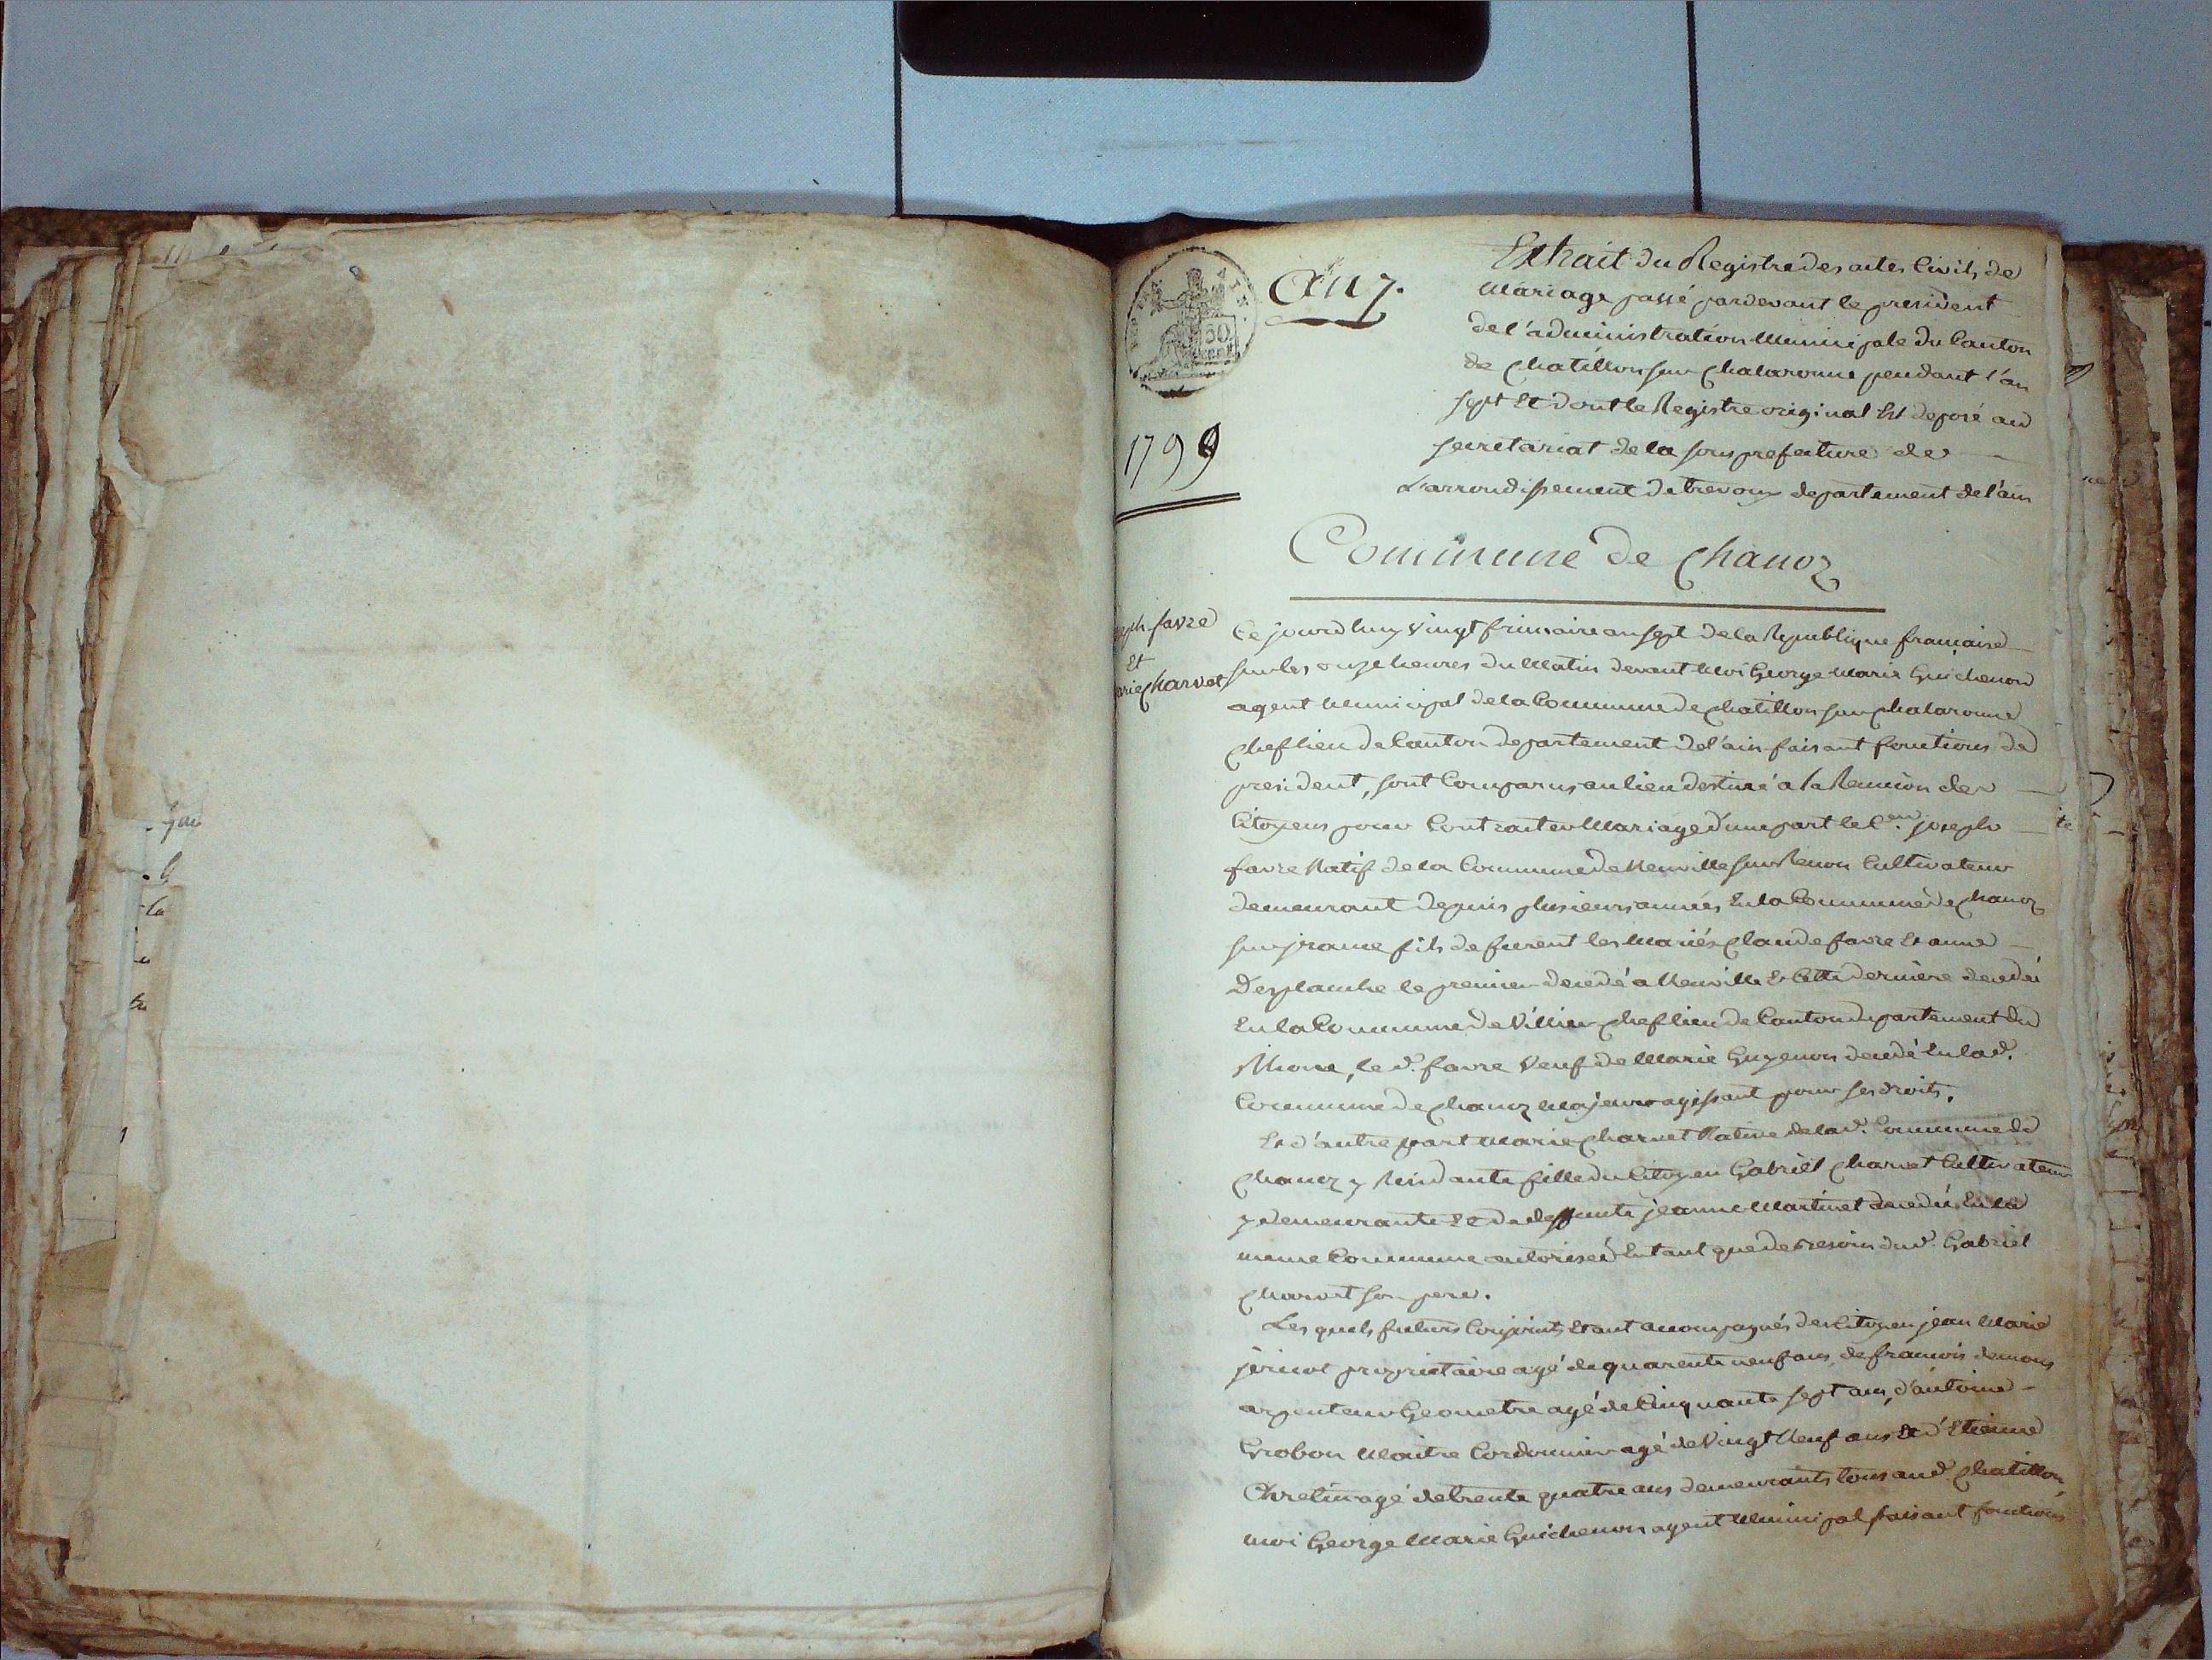 an 7.
Extrait du Registre des actes Civils de
Mariage passé pardevant le president
de l'administration Municipale du Canton
de chatillon sur chalaronne pendant l'an
sept Et dont le Registre original Est deposé au
secretariat de la sous prefecture de
L'arrondissement de trevoux departement de l'ain
50
1799
Commune de chanoz
seph favre
Et
arie charvet
Ce jourd'huy vingt frimaire an sept de la Republique française
sur les onze heures du Matin devant Moi George Marie Guichenon
agent Municipal de la Commune de chatillon sur chalaronne
chef lieu de Canton departement de l'ain faisant fonctions de
president, sont Comparus au lieu destiné a la Reunion des
Citoyens pour Contracter Mariage d'une part le C.en joseph
favre Natif de la Commune de Neuville sur Renon Cultivateur
demeurant depuis plusieurs années En la Commune de chanoz
fils de furent les Mariés claude favre Et anne
Desplanche le premier decedé a Neuville Et Cette derniere decedée
En la Commune de Villier chef lieu de Canton departement du
Rhone, le d. favre Veuf de Marie Guyenon decedé En la d.
Commune de chanoz Majeur agissant pour ses droits.
Et d'autre part Marie charvet Native de la d. Commune de
chanoz y Residante fille du Citoyen Gabriel charvet Cultivateur
y demeurante Et de deffunte jeanne Martinet decedée En la
meme Commune autorisée En tant que de besoin du d. Gabriel
charvet son pere.
Les quels futurs Conjoints Etant accompagnés des Citoyen jean Marie
jericot proprietaire agé de quarente neuf ans, de françois demons
arpenteur Geometre agé de Cinquante sept ans, d'antoine
Grobon Maitre Cordonnier agé de Vingt Neuf ans Et d'Etienne
Chretin agé de trente quatre ans demeurants tous aud. chatillon,
moi George Marie Guichenon agent Municipal faisant fonctions